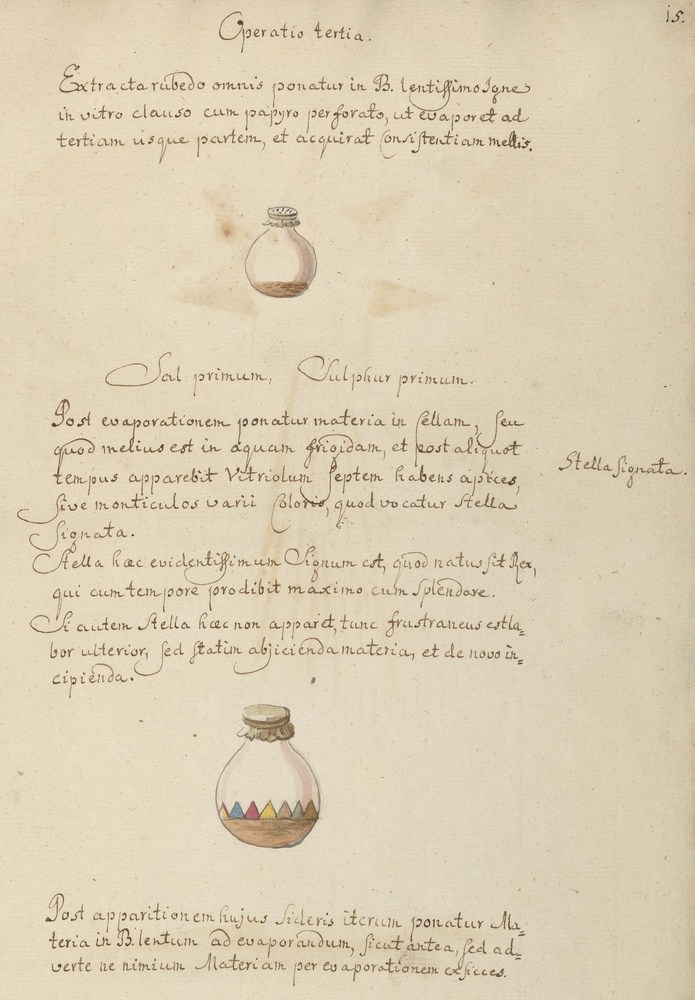 15.
Operatio tertia.
Extracta rubedo omnis ponatur in B. lentissimo Igne
in vitro clauso cum papyro perforato, ut evaporet ad
tertiam usque partem, et acquirat Consistentiam mellis.
Sal primum, Sulphur primum.
Post evaporationem ponatur materia in Cellam, seu
quod melius est in aquam frigidam, et post aliquot
tempus apparebit Vitriolum septem habens apices,
sive monticulos varii Coloris, quod vocatur Stella
Signata.
Stella Signata.
Stella hæc evidentissimum Signum est, quod natus sit Rex,
qui cum tempore prodibit maximo cum Splendore.
Si autem Stella hæc non apparet, tunc frustraneus est la=
bor ulterior, sed statim abjicienda materia, et de novo in=
cipienda.
Post apparitionem hujus Sideris iterum ponatur Ma=
teria in B. lentum ad evaporandum, sicut antea, sed ad=
verte ne nimium Materiam per evaporationem exsicces.